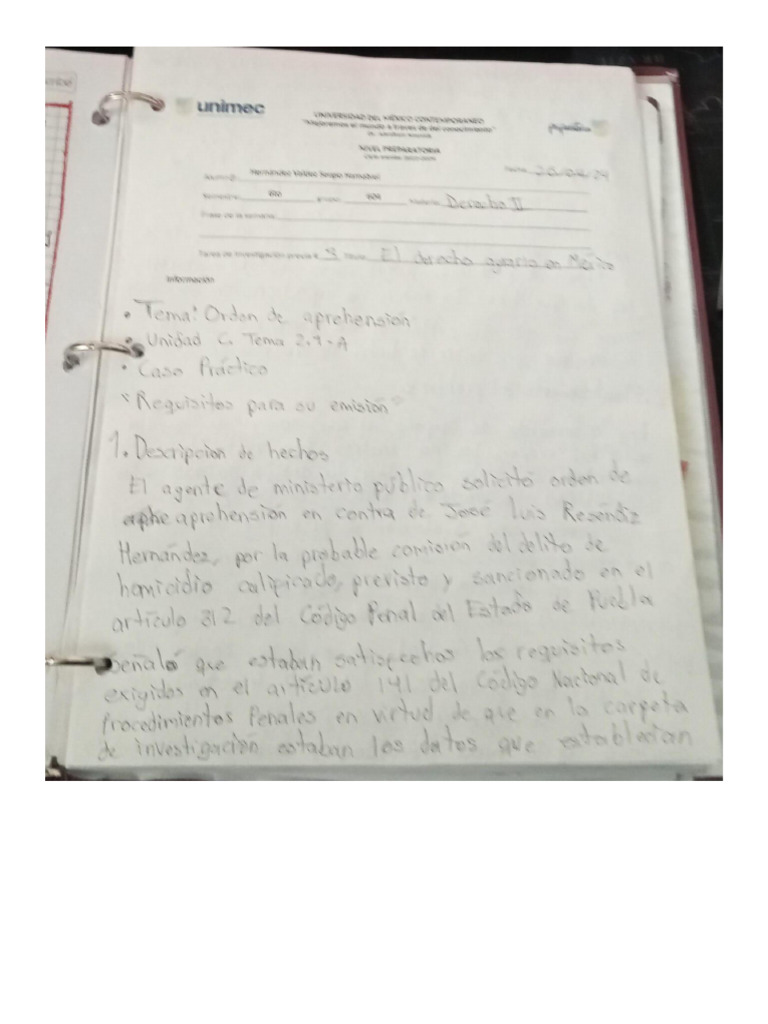 unimec
UNIVERSIDAD DEL MÉXICO CONTEMPORÁNEO
"Mejoremos el mundo a través de del conocimiento"
NIVEL PREPARATORIA
Fecha: 26/04/24
Hernández Valdez Sergio
Materia: Derecho II
Frase de la semana:
Tarea de investigación previa # 8 Título: El derecho agrario en México
Información
• Tema: Orden de aprehensión
• Unidad C. Tema 2.9-A
• Caso Práctico
"Requisitos para su emisión"
1. Descripción de hechos
El agente de ministerio público solicitó orden de
aphe aprehensión en contra de José Luis Reséndiz
Hernández, por la probable comisión del delito de
homicidio calificado, previsto y sancionado en el
artículo 312 del Código Penal del Estado de Puebla
Señaló que estaban satisfechos los requisitos
exigidos en el artículo 141 del Código Nacional de
Procedimientos Penales en virtud de que en la carpeta
de investigación estaban los datos que establecían